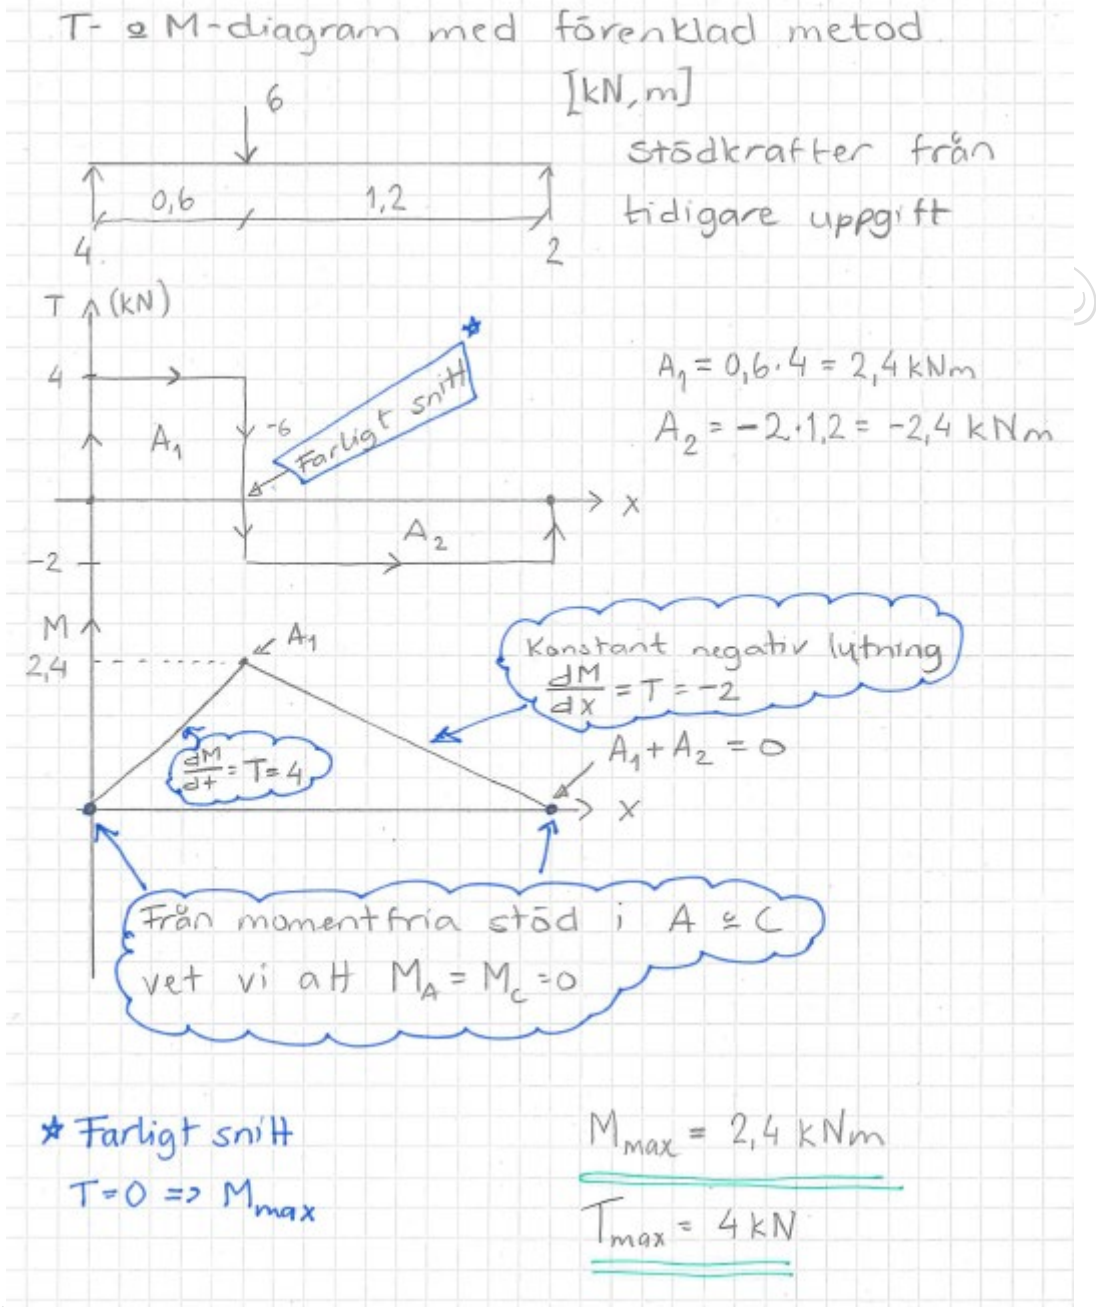 T- & M-diagram med förenklad metod
[kN, m]
6
stödkrafter från
tidigare uppgift
0,6
1,2
4
2
T (kN)
4
A₁
-6
Farligt snitt
A₁ = 0,6·4 = 2,4 kNm
A₂ = -2·1,2 = -2,4 kNm
x
A₂
-2
M
2,4
A₁
Konstant negativ lutning
dM/dx = T = -2
dM/dt = T = 4
A₁ + A₂ = 0
x
Från momentfria stöd i A & C
vet vi att M_A = M_C = 0
* Farligt snitt
T=0 => M_max
M_max = 2,4 kNm
T_max = 4 kN